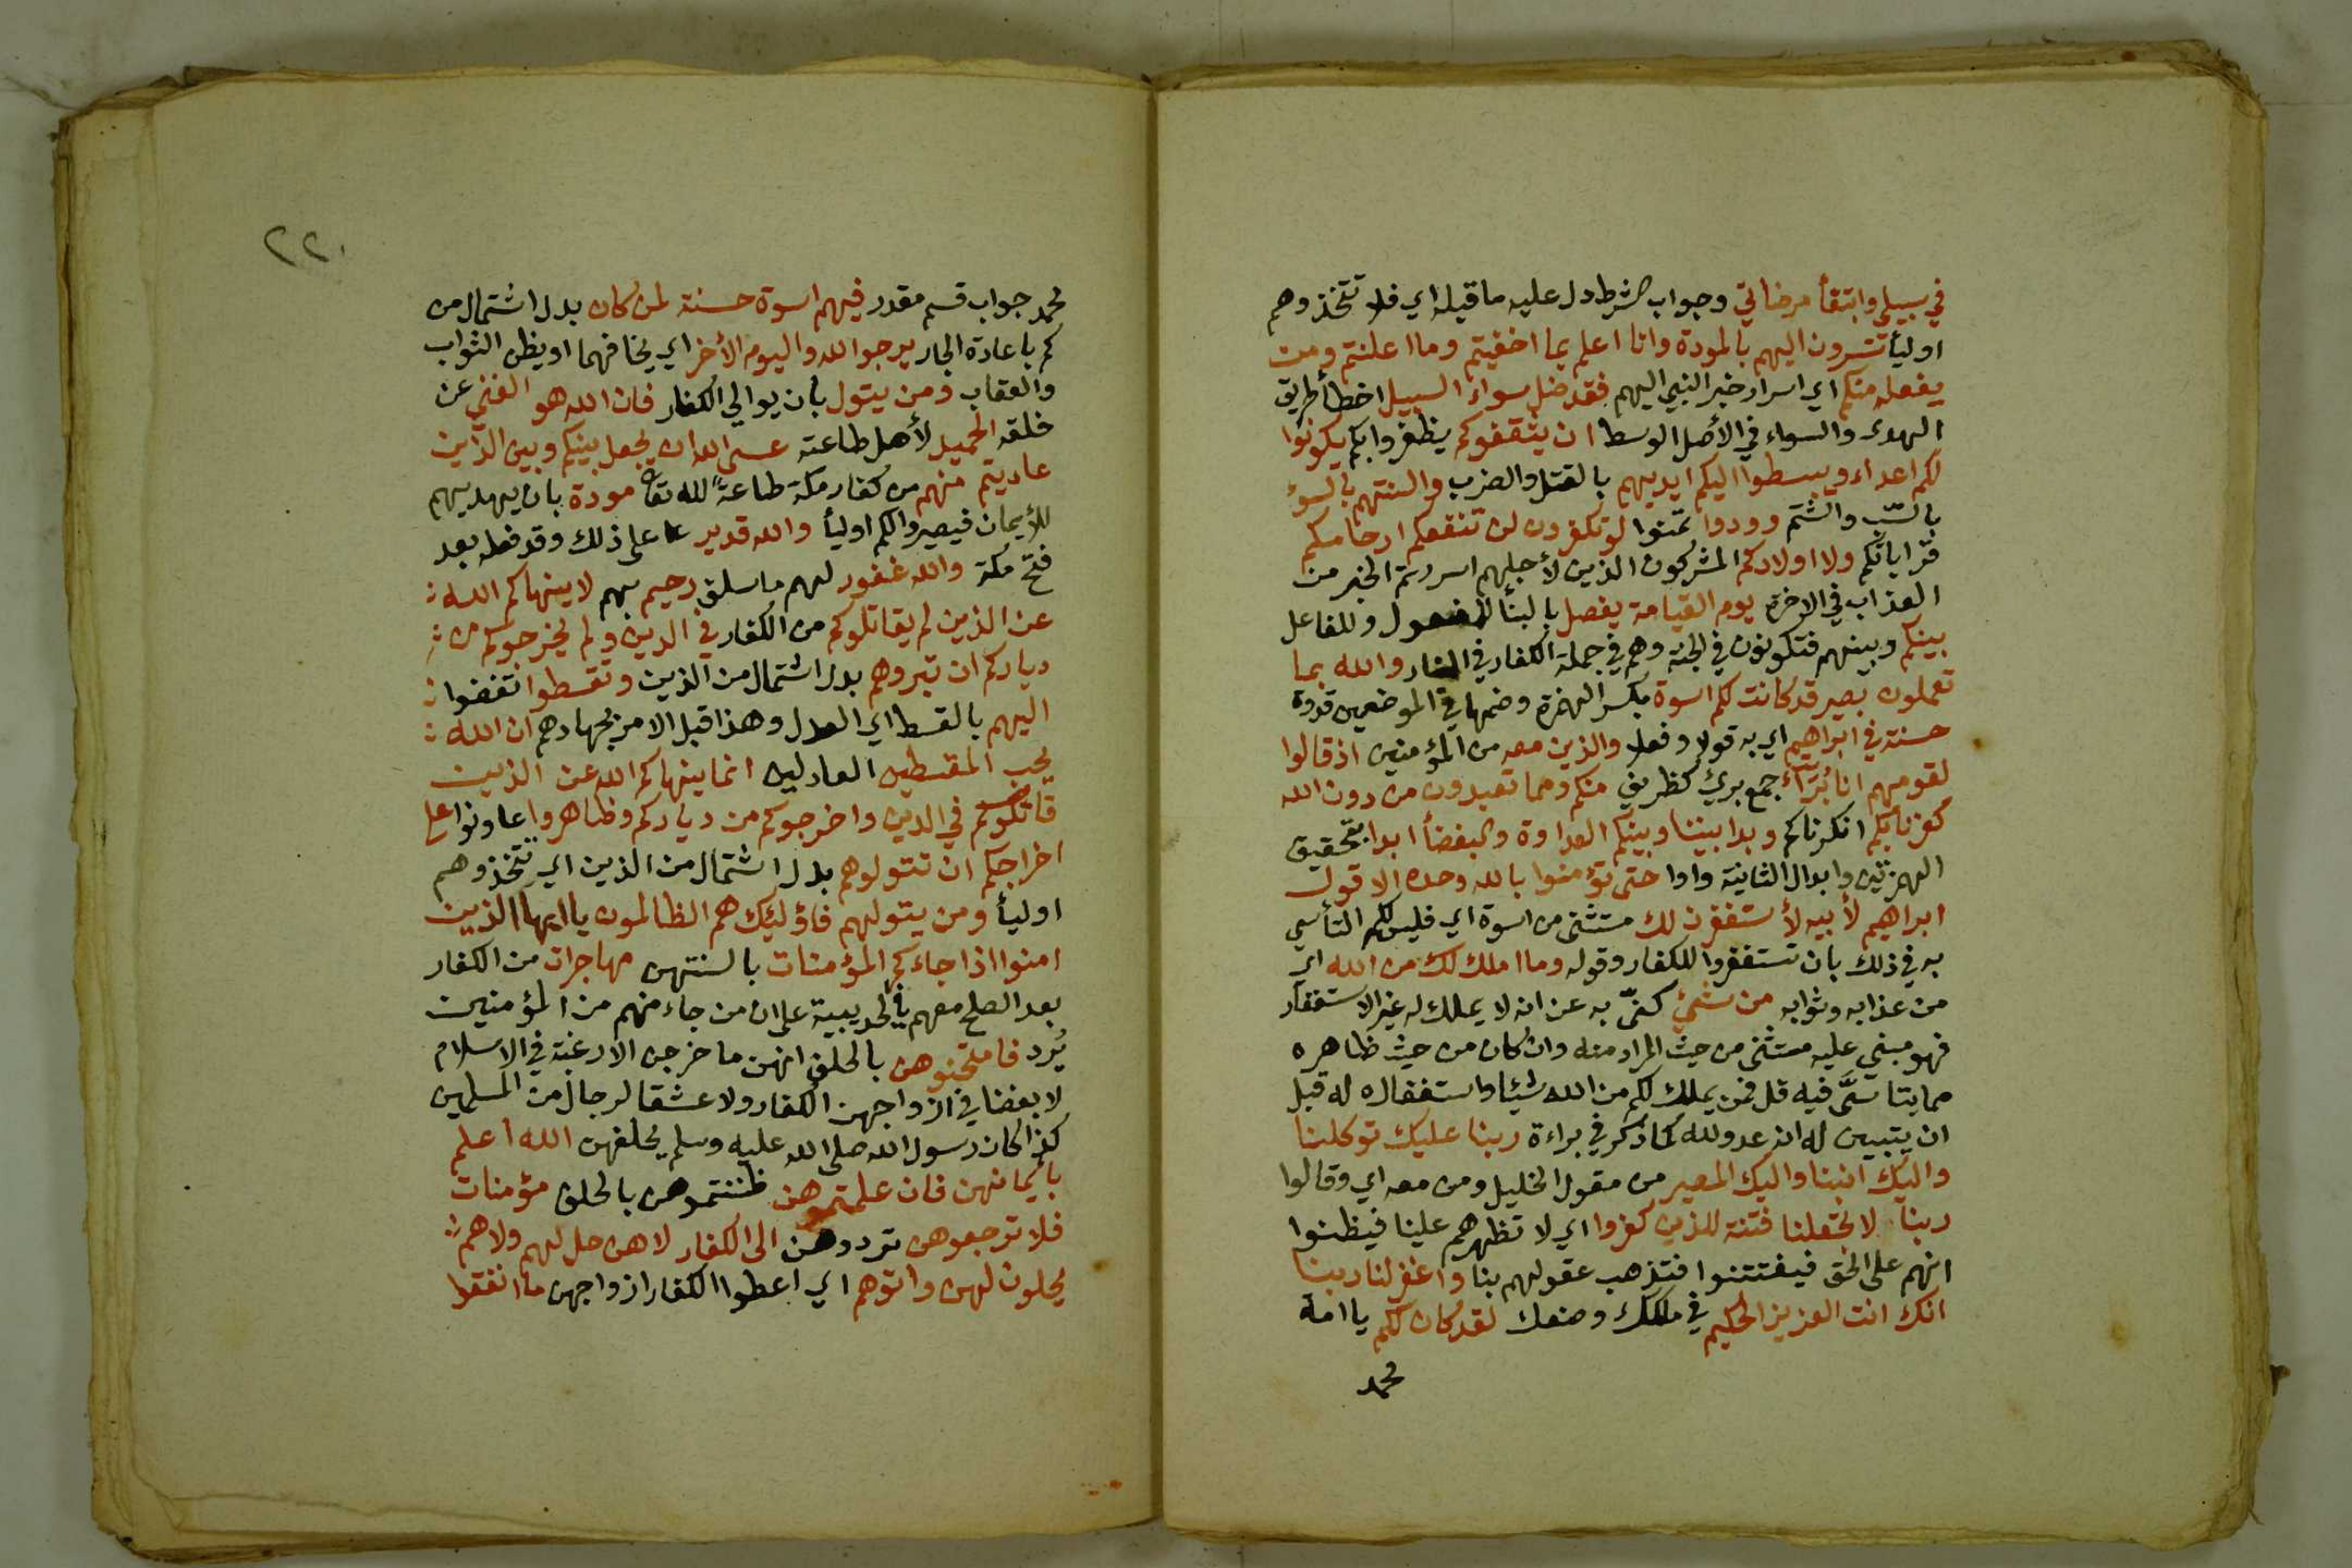 في سبيلي وابتغأ مرضاتي وجواب الشرط دل عليه ما قبله اي فلا تتخذوهم
اوليأ تسرون اليهم بالمودة وانا اعلم بما اخفيتم وما اعلنتم ومن
يفعله منكم اي اسرار خبر النبي اليهم فقد ضل سواء السبيل اخطأ طريق
الهدى والسواء في الأصل الوسط ان يثقفوكم يظفروا بكم يكونوا
لكم اعداء ويبسطوا اليكم ايديهم بالقتل والضرب والسنتهم بالسوء
بالسّب والشتم وودوا تمنوا لو تكفرون لن تنفعكم ارحامكم
قراباتكم ولا اولادكم المشركون الذين لأجلهم اسررتم الخبر من
العذاب في الاخرة يوم القيامة يفصل بالبنأ للمفعول وللفاعل
بينكم وبينهم فتكونون في الجنة وهم في جملة الكفار في النار والله بما
تعملون بصير قد كانت لكم اسوة بكسر الهمزة وضمها في الموضعين قدوة
حسنة في ابراهيم اي به قولا وفعلا والذين معه من المؤمنين اذ قالوا
لقومهم انا بُرَآء جمع بريئ كظريف منكم ومما تعبدون من دون الله
كفرنا بكم انكرناكم وبدا بيننا وبينكم العداوة والبغضأ ابدا بتحقيق
الهمزتين وابدال الثانية واوا حتى تؤمنوا بالله وحده الا قول
ابراهيم لأبيه لأستغفرن لك مستثنى من اسوة اي فليس لكم التأسي
به في ذلك بان تستغفروا للكفار وقوله وما املك لك من الله اي
من عذابه وثوابه من شيئ كنّى به عن انه لا يملك له غير الاستغفار
فهو مبني عليه مستثنى من حيث المراد منه وان كان من حيث ظاهره
مما يتاسَّى فيه قل فمن يملك لكم من الله شيئا واستغفاره له قبل
ان يتبين له انه عدو لله كما ذكر في براءة ربنا عليك توكلنا
واليك انبنا واليك المصير من مقول الخليل ومن معه اي وقالوا
ربنا لا تجعلنا فتنة للذين كفروا اي لا تظهرهم علينا فيظنوا
انهم على الحق فيفتتنوا فتذهب عقولهم بنا واغفر لنا ربنا
انك انت العزيز الحكيم في ملكك وصنعك لقد كان لكم يا امة
محمد
٢٢٠
محمد جواب قسم مقدر فيهم اسوة حسنة لمن كان بدل اشتمال من
كم باعادة الجار يرجوا الله واليوم الأخر اي يخافهما او يظن الثواب
والعقاب ومن يتول بان يوالي الكفار فان الله هو الغني عن
خلقه الحميد لأهل طاعته عسى الله ان يجعل بينكم وبين الذين
عاديتم منهم من كفار مكة طاعةً لله تعا مودة بان يهديهم
للأيمان فيصيروا لكم اوليأ والله قدير على ذلك وقد فعله بعد
فتح مكة والله غفور لهم ما سلف رحيم بهم لا ينهاكم الله
عن الذين لم يقاتلوكم من الكفار في الدين ولم يخرجوكم من
دياركم ان تبروهم بدل اشتمال من الذين وتقسطوا تفضوا
اليهم بالقسط اي العدل وهذا قبل الامر بجهادهم ان الله
يحب المقسطين العادلين انما ينهاكم الله عن الذين
قاتلوكم في الدين واخرجوكم من دياركم وظاهروا عاونوا على
اخراجكم ان تتولوهم بدل اشتمال من الذين اي تتخذوهم
اوليأ ومن يتولهم فاؤلئك هم الظالمون يا ايها الذين
امنوا اذا جاءكم المؤمنات بالسنتهن مهاجرات من الكفار
بعد الصلح معهم في الحديبية على ان من جاء منهم من المؤمنين
يُرد فامتحنوهن بالحلف انهن ما خرجن الا رغبة في الاسلام
لا بغضا في ازواجهن الكفار ولا عشقا لرجال من المسلمين
كذا كان رسول الله صلى الله عليه وسلم يحلفهن الله اعلم
بأيمانهن فان علمتموهن ظننتموهن بالحلف مؤمنات
فلا ترجعوهن تردوهن الى الكفار لا هن حل لهم ولا هم
يحلون لهن واتوهم اي اعطوا الكفار ازواجهن ما انفقوا